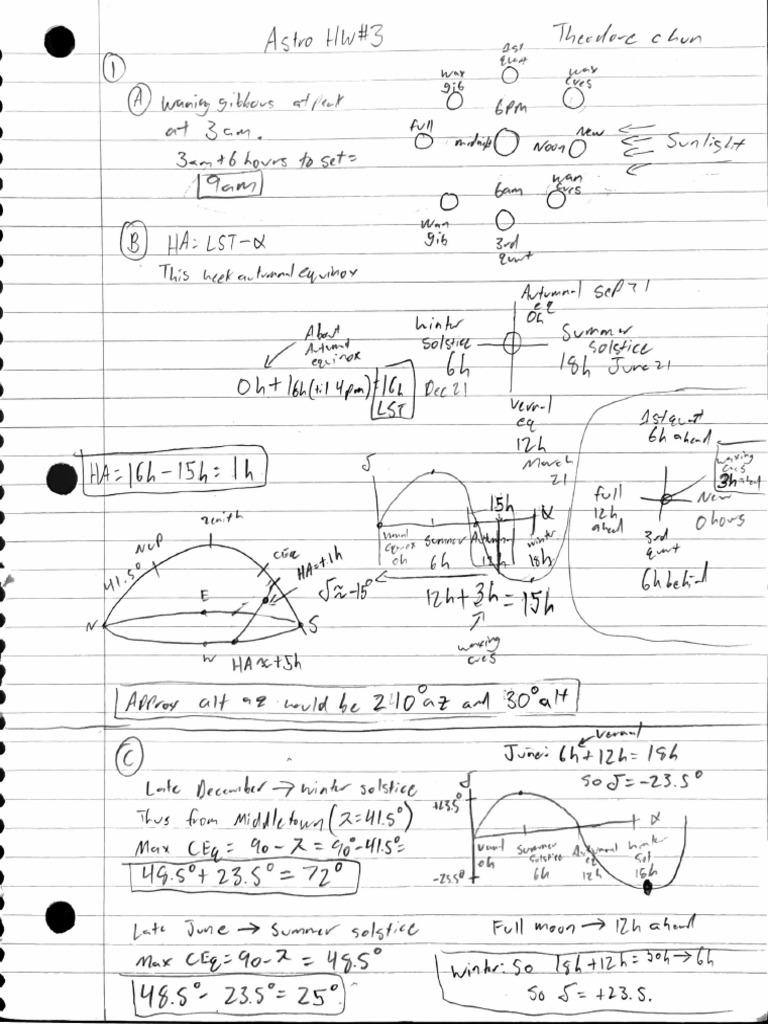 Astro HW#3
Theodore Chun
①
Ⓐ Waning gibbous at peak
at 3am.
3am + 6 hours to set =
9am
1st quart
wax gib
wax cres
6pm
full
midnight
Noon
New
Sunlight
6am
wan cres
wan gib
3rd quart
Ⓑ HA = LST - α
This week autumnal equinox
Autumnal eq Sep 21
0h
Winter solstice
6h
Dec 21
Summer solstice
18h June 21
Vernal eq
12h
March 21
About Autumnal equinox
0h + 16h (til 4pm) = 16h LST
HA = 16h - 15h = 1h
1st quart
6h ahead
waxing cres
3h ahead
full
12h ahead
New
0 hours
3rd quart
6h behind
δ
15h
α
Vernal equinox 0h
Summer 6h
Autumn 12h
winter 18h
12h + 3h = 15h
waxing cres
zenith
NCP
41.5°
CEq
HA=+1h
δ ≈ -15°
E
N
S
W
HA ≈ +5h
Approx alt az would be 240° az and 30° alt
Ⓒ
Late December → winter solstice
Thus from Middletown (λ = 41.5°)
Max CEq = 90 - λ = 90° - 41.5° =
48.5° + 23.5° = 72°
Vernal
June: 6h + 12h = 18h
So δ = -23.5°
δ
+23.5°
-23.5°
α
Vernal 0h
Summer solstice 6h
Autumnal eq 12h
Winter sol 18h
Late June → Summer solstice
Max CEq = 90 - λ = 48.5°
48.5° - 23.5° = 25°
Full moon → 12h ahead
Winter: So 18h + 12h = 30h → 6h
So δ = +23.5.